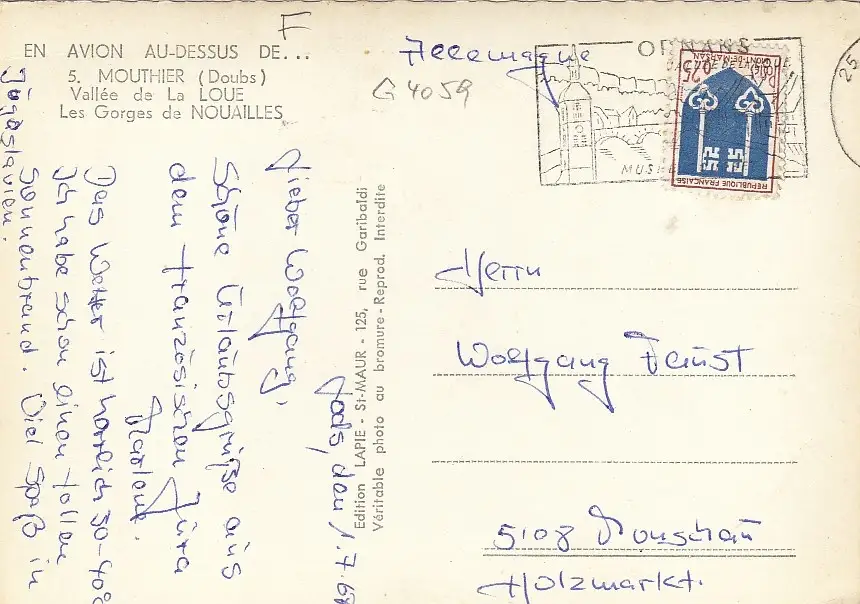 F
EN AVION AU-DESSUS DE...
5. MOUTHIER (Doubs)
Vallée de La LOUE
Les Gorges de NOUAILLES
G 4059
Allemagne
ORNANS
MUS
0,25
MONT-DE-MARSAN
REPUBLIQUE FRANÇAISE
25
den 1.7.68
Lieber Wolfgang,
Schöne Urlaubsgrüße aus
dem französischen Jura
Marlene.
Das Wetter ist herrlich 30-40°
Ich habe schon einen tollen
Sonnenbrand. Viel Spaß in
Jugoslavien.
Edition LAPIE - St-MAUR - 125, rue Garibaldi
Véritable photo au bromure - Reprod. Interdite
Herrn
Wolfgang Faust
5108 Monschau
Holzmarkt.